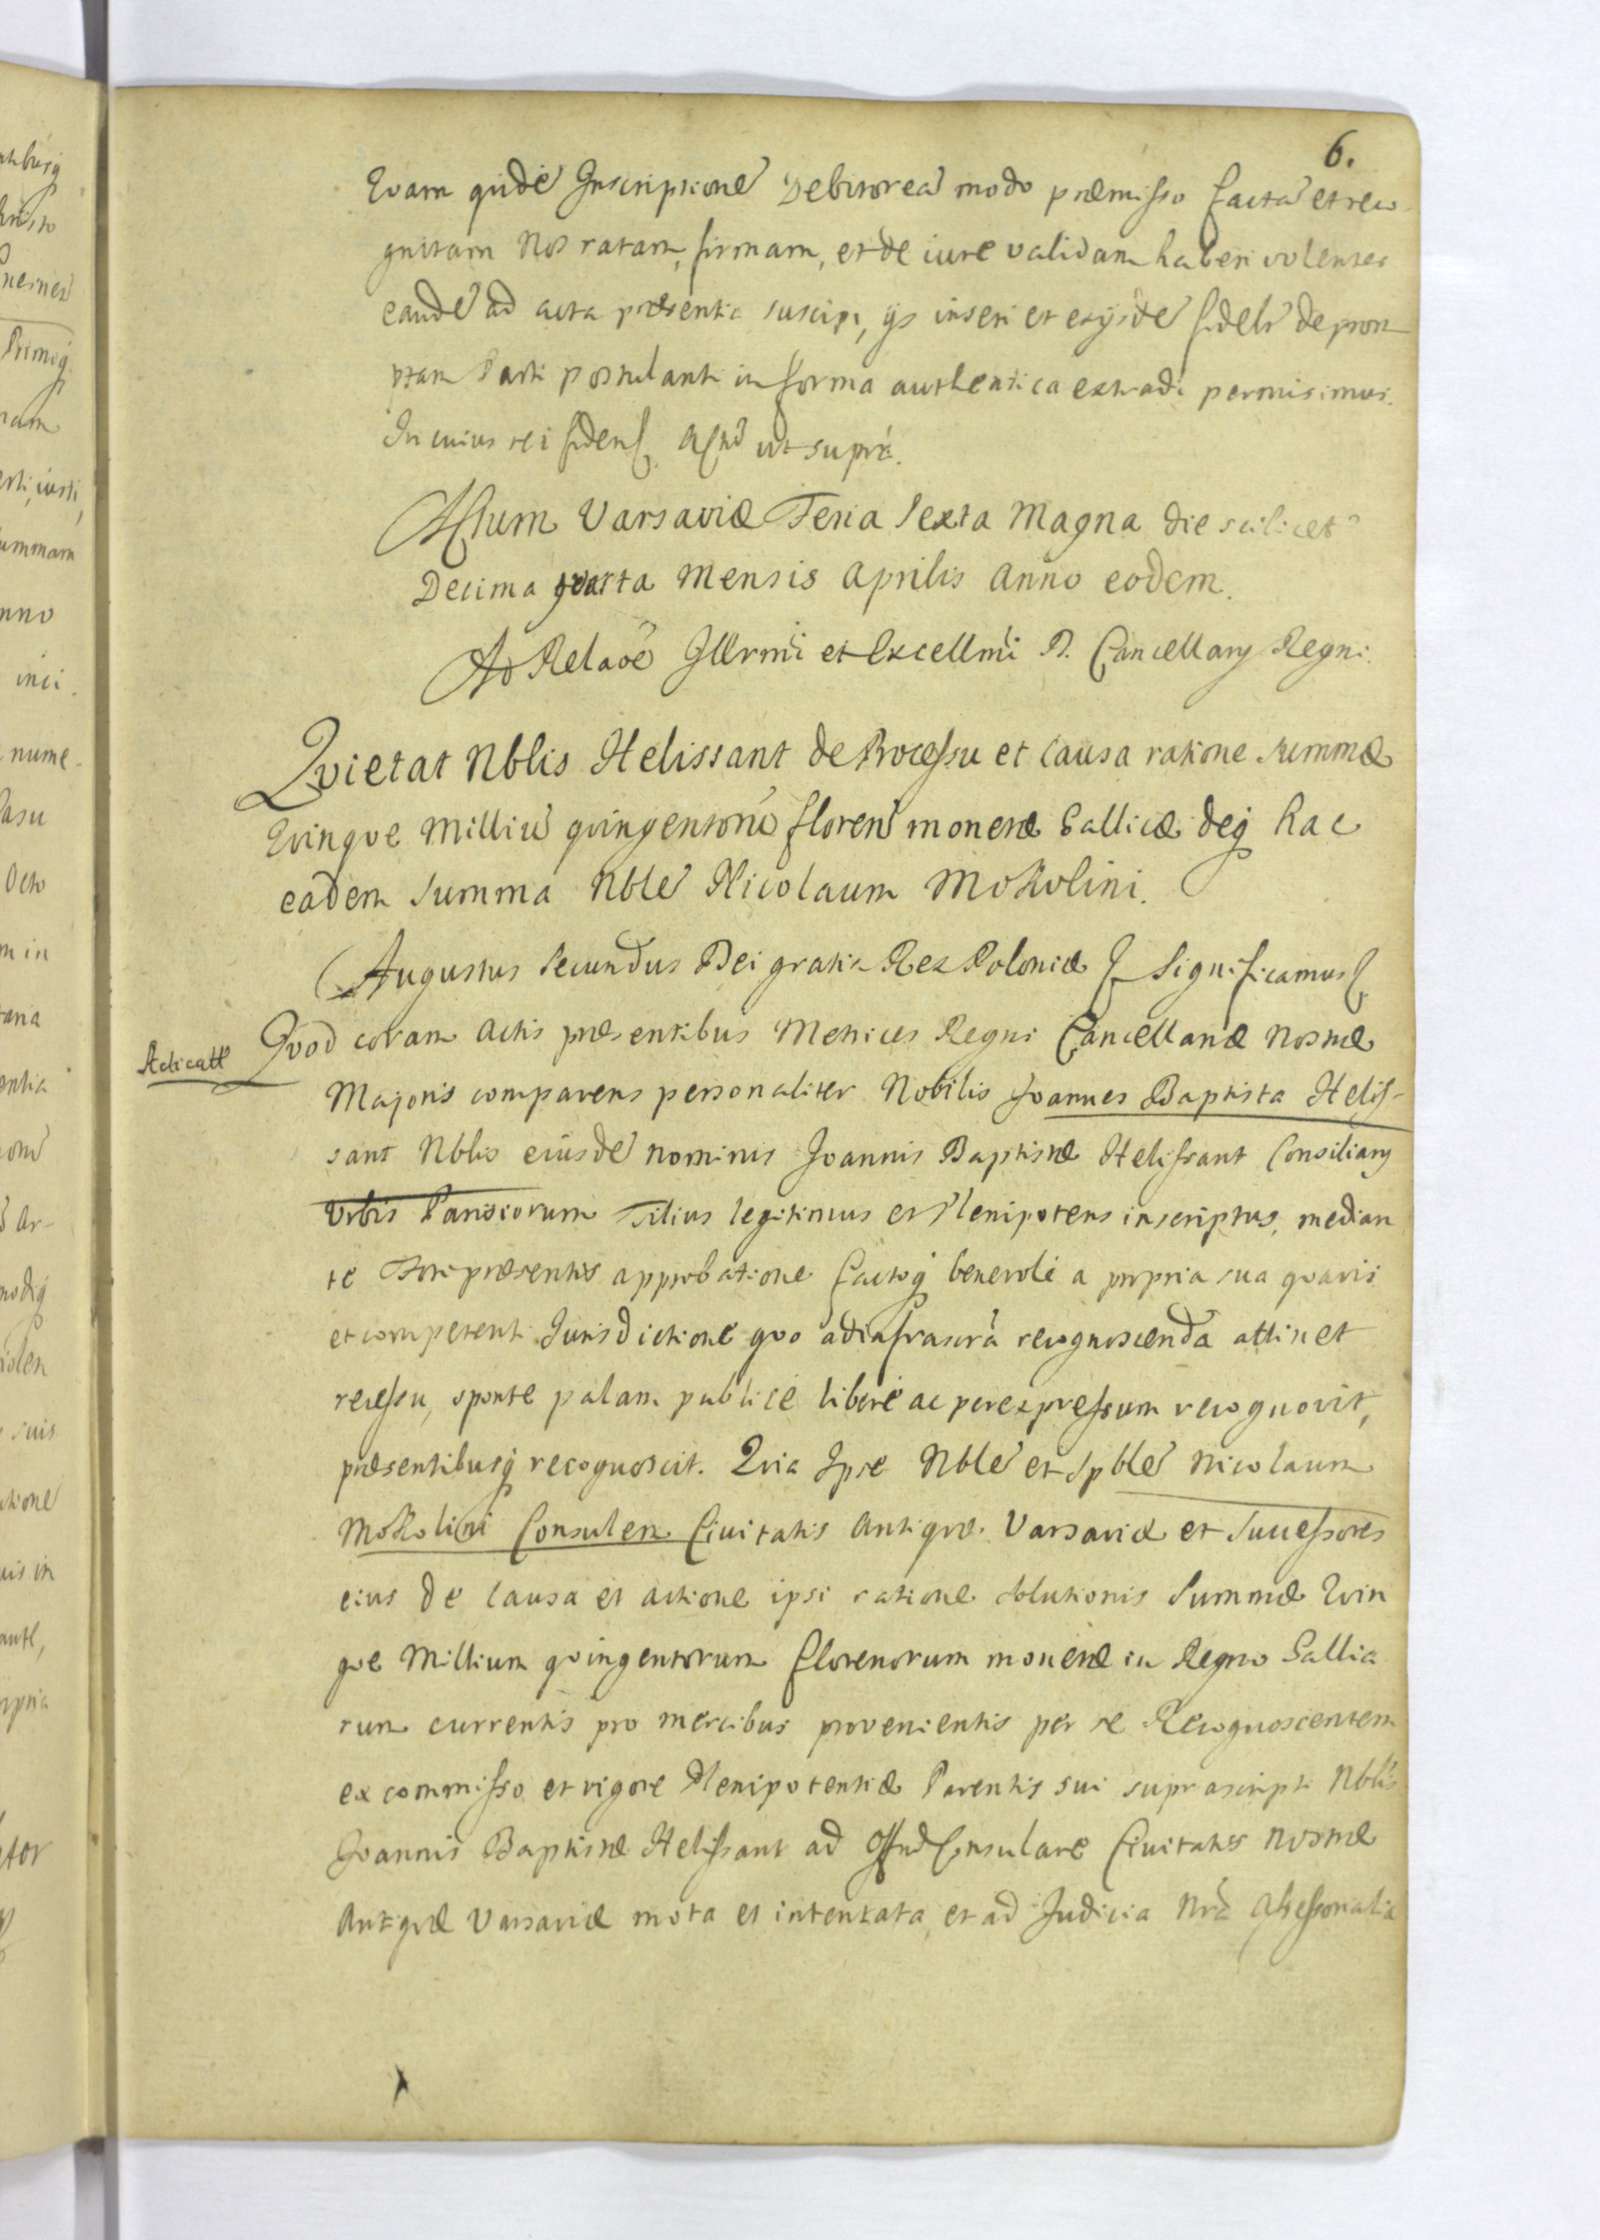 6.
Qvam qvidē Inscriptionē Debitoreā modo præmisso factā et reco
gnitam Nos ratam, firmam, et de iure validam haberi volentes
eandē ad acta præsentia suscipi, ijs inseri et exijsdē fideli depron
ptam Parti postulanti in forma authentica extradi permisimus.
In cuius rei fidem. Act. ut supra.
Actum Varsaviæ Feria Sexta Magna die scilicet
Decima qvarta Mensis Aprilis Anno eodem.
Ad Relaōē Illrmi et Excellmi D. Cancellarij Regni.
Qvietat Nblis Helissant de Processu et causa ratione Summæ
Qvinqve Milliū qvingentorū floren monetæ Gallicæ deq hac
eadem Summa Nblē Nicolaum Mokolini.
Augustus Secundus Dei gratia Rex Poloniæ Significamus
Qvod coram Actis præsentibus Metrices Regni Cancellariæ Nostræ
Majoris comparens personaliter Nobilis Joannes Baptista Helis-
sant Nblis eiusdē nominis Joannis Baptistæ Helissant Consiliarij
Urbis Parisiorum Filius legitimus et Plenipotens inscriptus, median
te Fori præsentis approbatione factoq benevolè a propria sua qvavis
et competenti Jurisdictione qvo ad infrascrā recognoscenda attinet
recessu, sponte palam publicè liberè ac per expressum recognovit,
præsentibusq recognoscit. Qvia Ipse Nblē et Spblē Nicolaum
Mokolini Consulem Civitatis Antiqvæ Varsaviæ et Successores
eius de causa et actione ipsi ratione solutionis Summæ Qvin
qve Millium qvingentorum florenorum monetæ in Regno Gallia
rum currentis pro mercibus provenientis per se Recognoscentem
ex commisso et vigore Plenipotentiæ Parentis sui suprascripti Nblis
Joannis Baptistæ Helissant ad Consulare Civitatis Nostræ
Antiqvæ Varsaviæ mota et intentata, et ad Judicia Nra Assessorialia